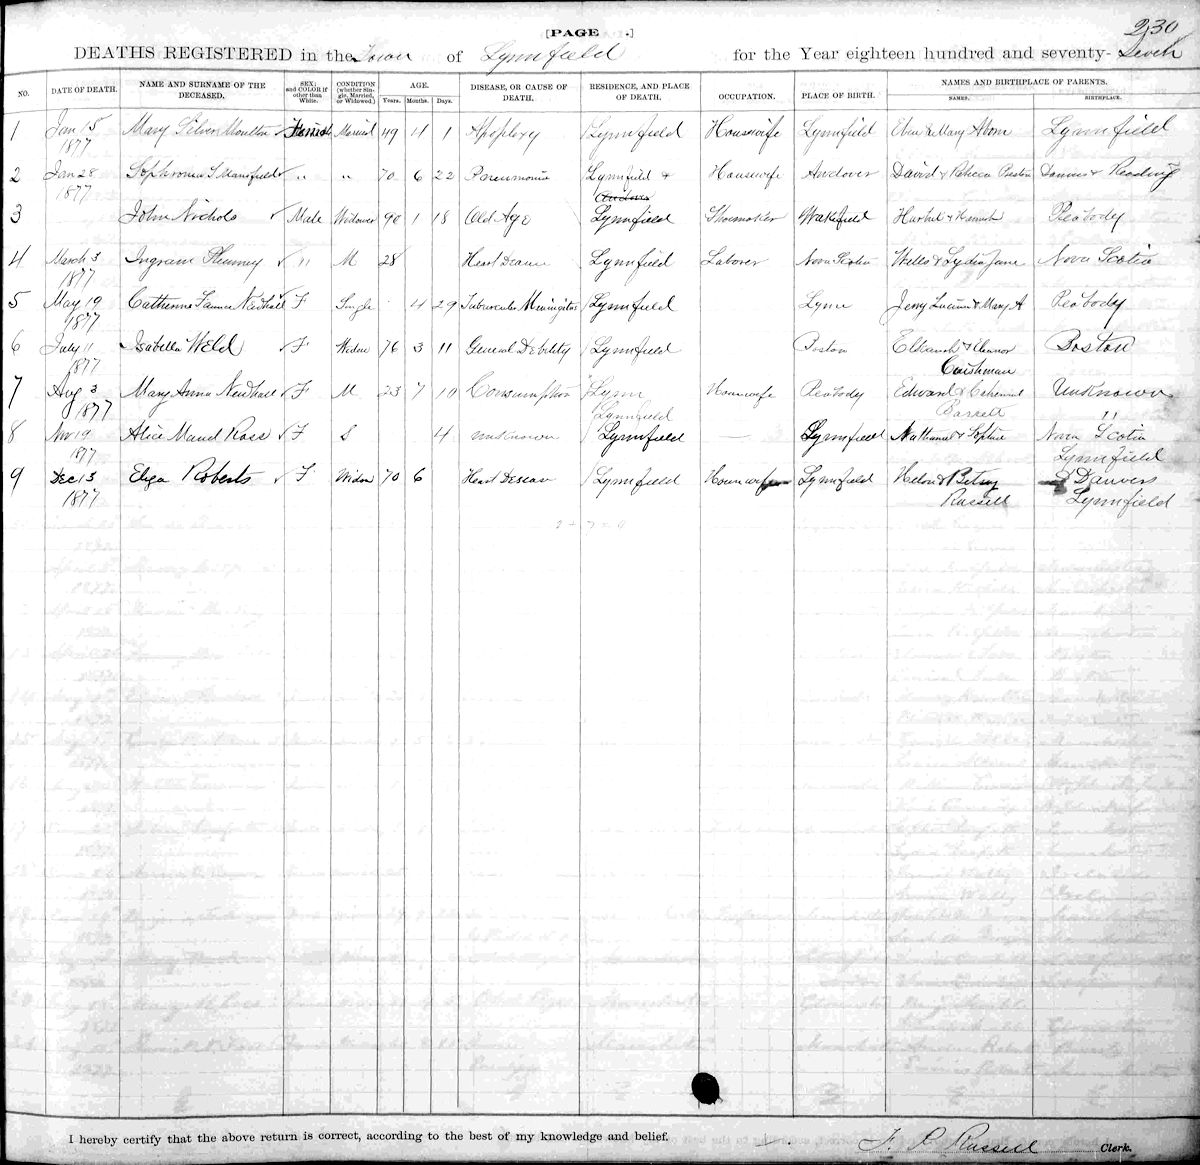 230
[PAGE .]
DEATHS REGISTERED in the Town of Lynnfield for the Year eighteen hundred and seventy- Seven
NO. DATE OF DEATH. NAME AND SURNAME OF THE DECEASED. SEX; and COLOR if other than White. CONDITION (whether Single, Married, or Widowed.) AGE. Years. Months. Days. DISEASE, OR CAUSE OF DEATH. RESIDENCE, AND PLACE OF DEATH. OCCUPATION. PLACE OF BIRTH. NAMES AND BIRTHPLACE OF PARENTS. NAMES. BIRTHPLACE.
1 Jan 15 1877 Mary Silver Moulton Married 49 4 1 Apoplexy Lynnfield Housewife Lynnfield Eben & Mary Aborn Lynnfield
2 Jan 28 1877 Sophronia S Mansfield " " 70 6 22 Pneumonia Lynnfield & Andover Housewife Andover David & Rebecca Preston Danvers & Reading
3 John Nichols Male Widower 90 1 18 Old Age Lynnfield Shoemaker Wakefield & Hannah Peabody
4 March 3 1877 Ingram Phinney " M 28 Heart Disease Lynnfield Laborer Nova Scotia & Lydia Jane Nova Scotia
5 May 19 1877 Catherine Newhall F Single 4 29 Tubercular Meningitis Lynnfield Lynn & Mary A Peabody
6 July 11 1877 Isabella Weld F Widow 76 3 11 General Debility Lynnfield Boston & Eleanor Boston
Cushman
7 Aug 3 1877 Mary Anna Newhall F M 23 7 10 Consumption Lynn Housewife Peabody Edward & Catherine Unknown
Lynnfield Barrett "
8 Nov 19 1877 Alice Maud Ross F S 4 unknown Lynnfield — Lynnfield Nathaniel & Nova Scotia
Lynnfield
9 Dec 13 1877 Eliza Roberts F Widow 70 6 Heart Disease Lynnfield Housewife Lynnfield & Betsy Danvers
Russell Lynnfield
2 + 7 = 9
I hereby certify that the above return is correct, according to the best of my knowledge and belief.
Russell Clerk.